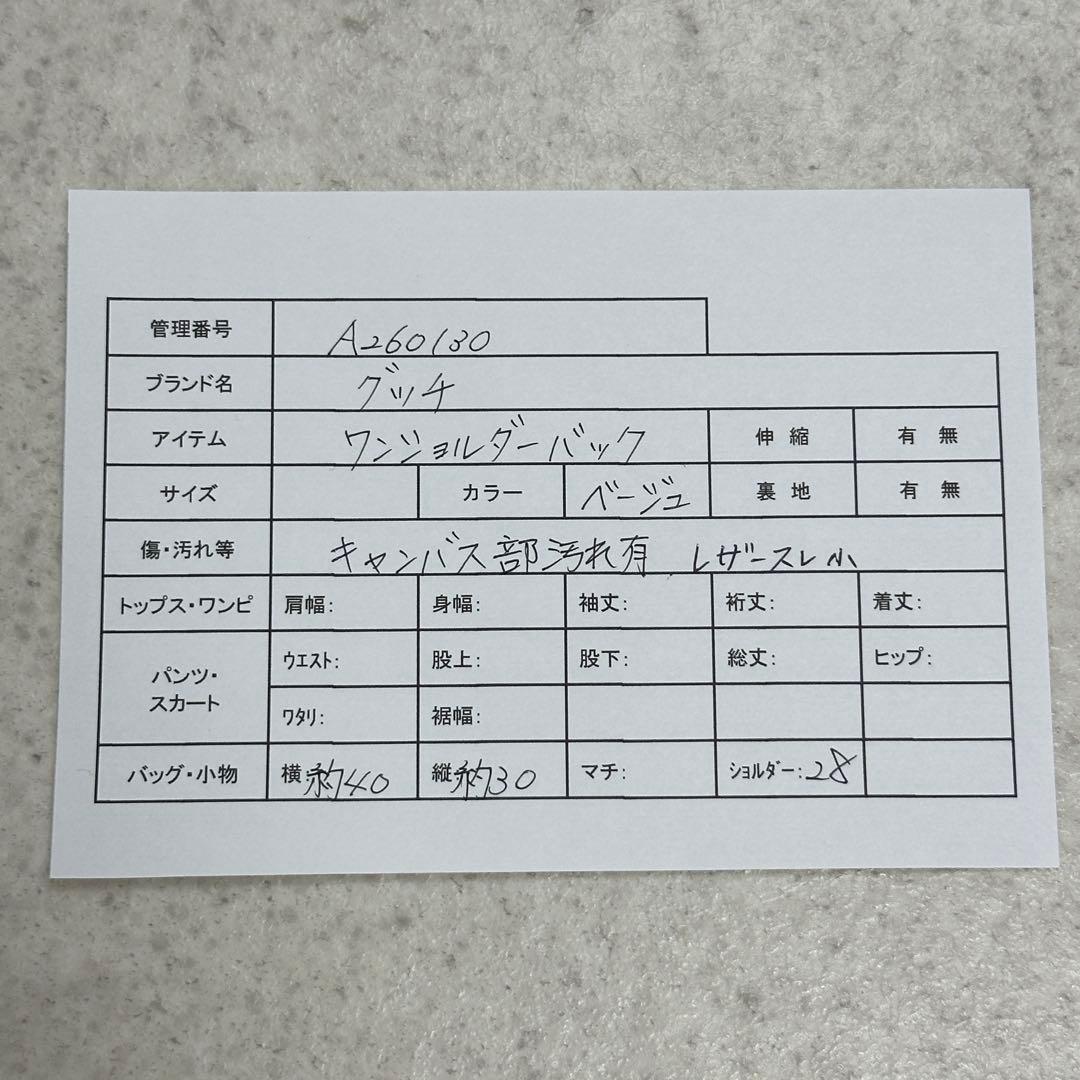 管理番号 A260130
ブランド名 グッチ
アイテム ワンショルダーバック 伸縮 有 無
サイズ カラー ベージュ 裏地 有 無
傷・汚れ等 キャンバス部汚れ有 レザースレ小
トップス・ワンピ 肩幅: 身幅: 袖丈: 裄丈: 着丈:
パンツ・スカート ウエスト: 股上: 股下: 総丈: ヒップ:
ワタリ: 裾幅:
バッグ・小物 横約40 縦約30 マチ: ショルダー:28